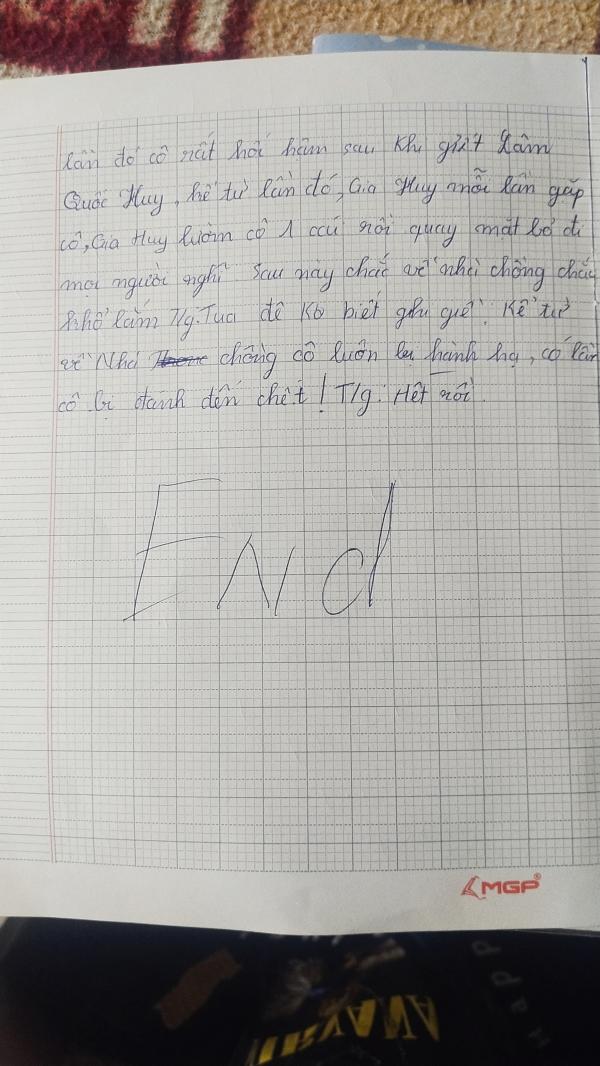 lần đó cô rất hối hận sau khi giết Lâm
Quốc Huy, kể từ lần đó, Gia Huy mỗi lần gặp
cô, Gia Huy lườm cô 1 cái rồi quay mặt bỏ đi
mọi người nghĩ sau này chắc về nhà chồng chắc
khổ lắm T/g: Tua đê Ko biết ghi gìề. Kể từ
về Nhà chồng cô luôn bị hành hạ, có lần
cô bị đánh đến chết! T/g: Hết rồi.
ENd
MGP